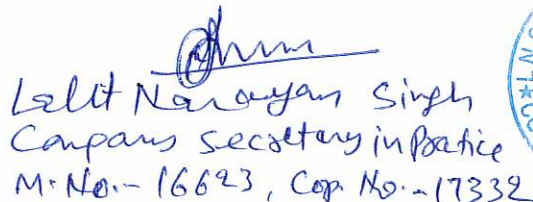 Lalit Narayan Singh
Company Secretary in Practice
M. No. - 16623, Cop. No. - 17332